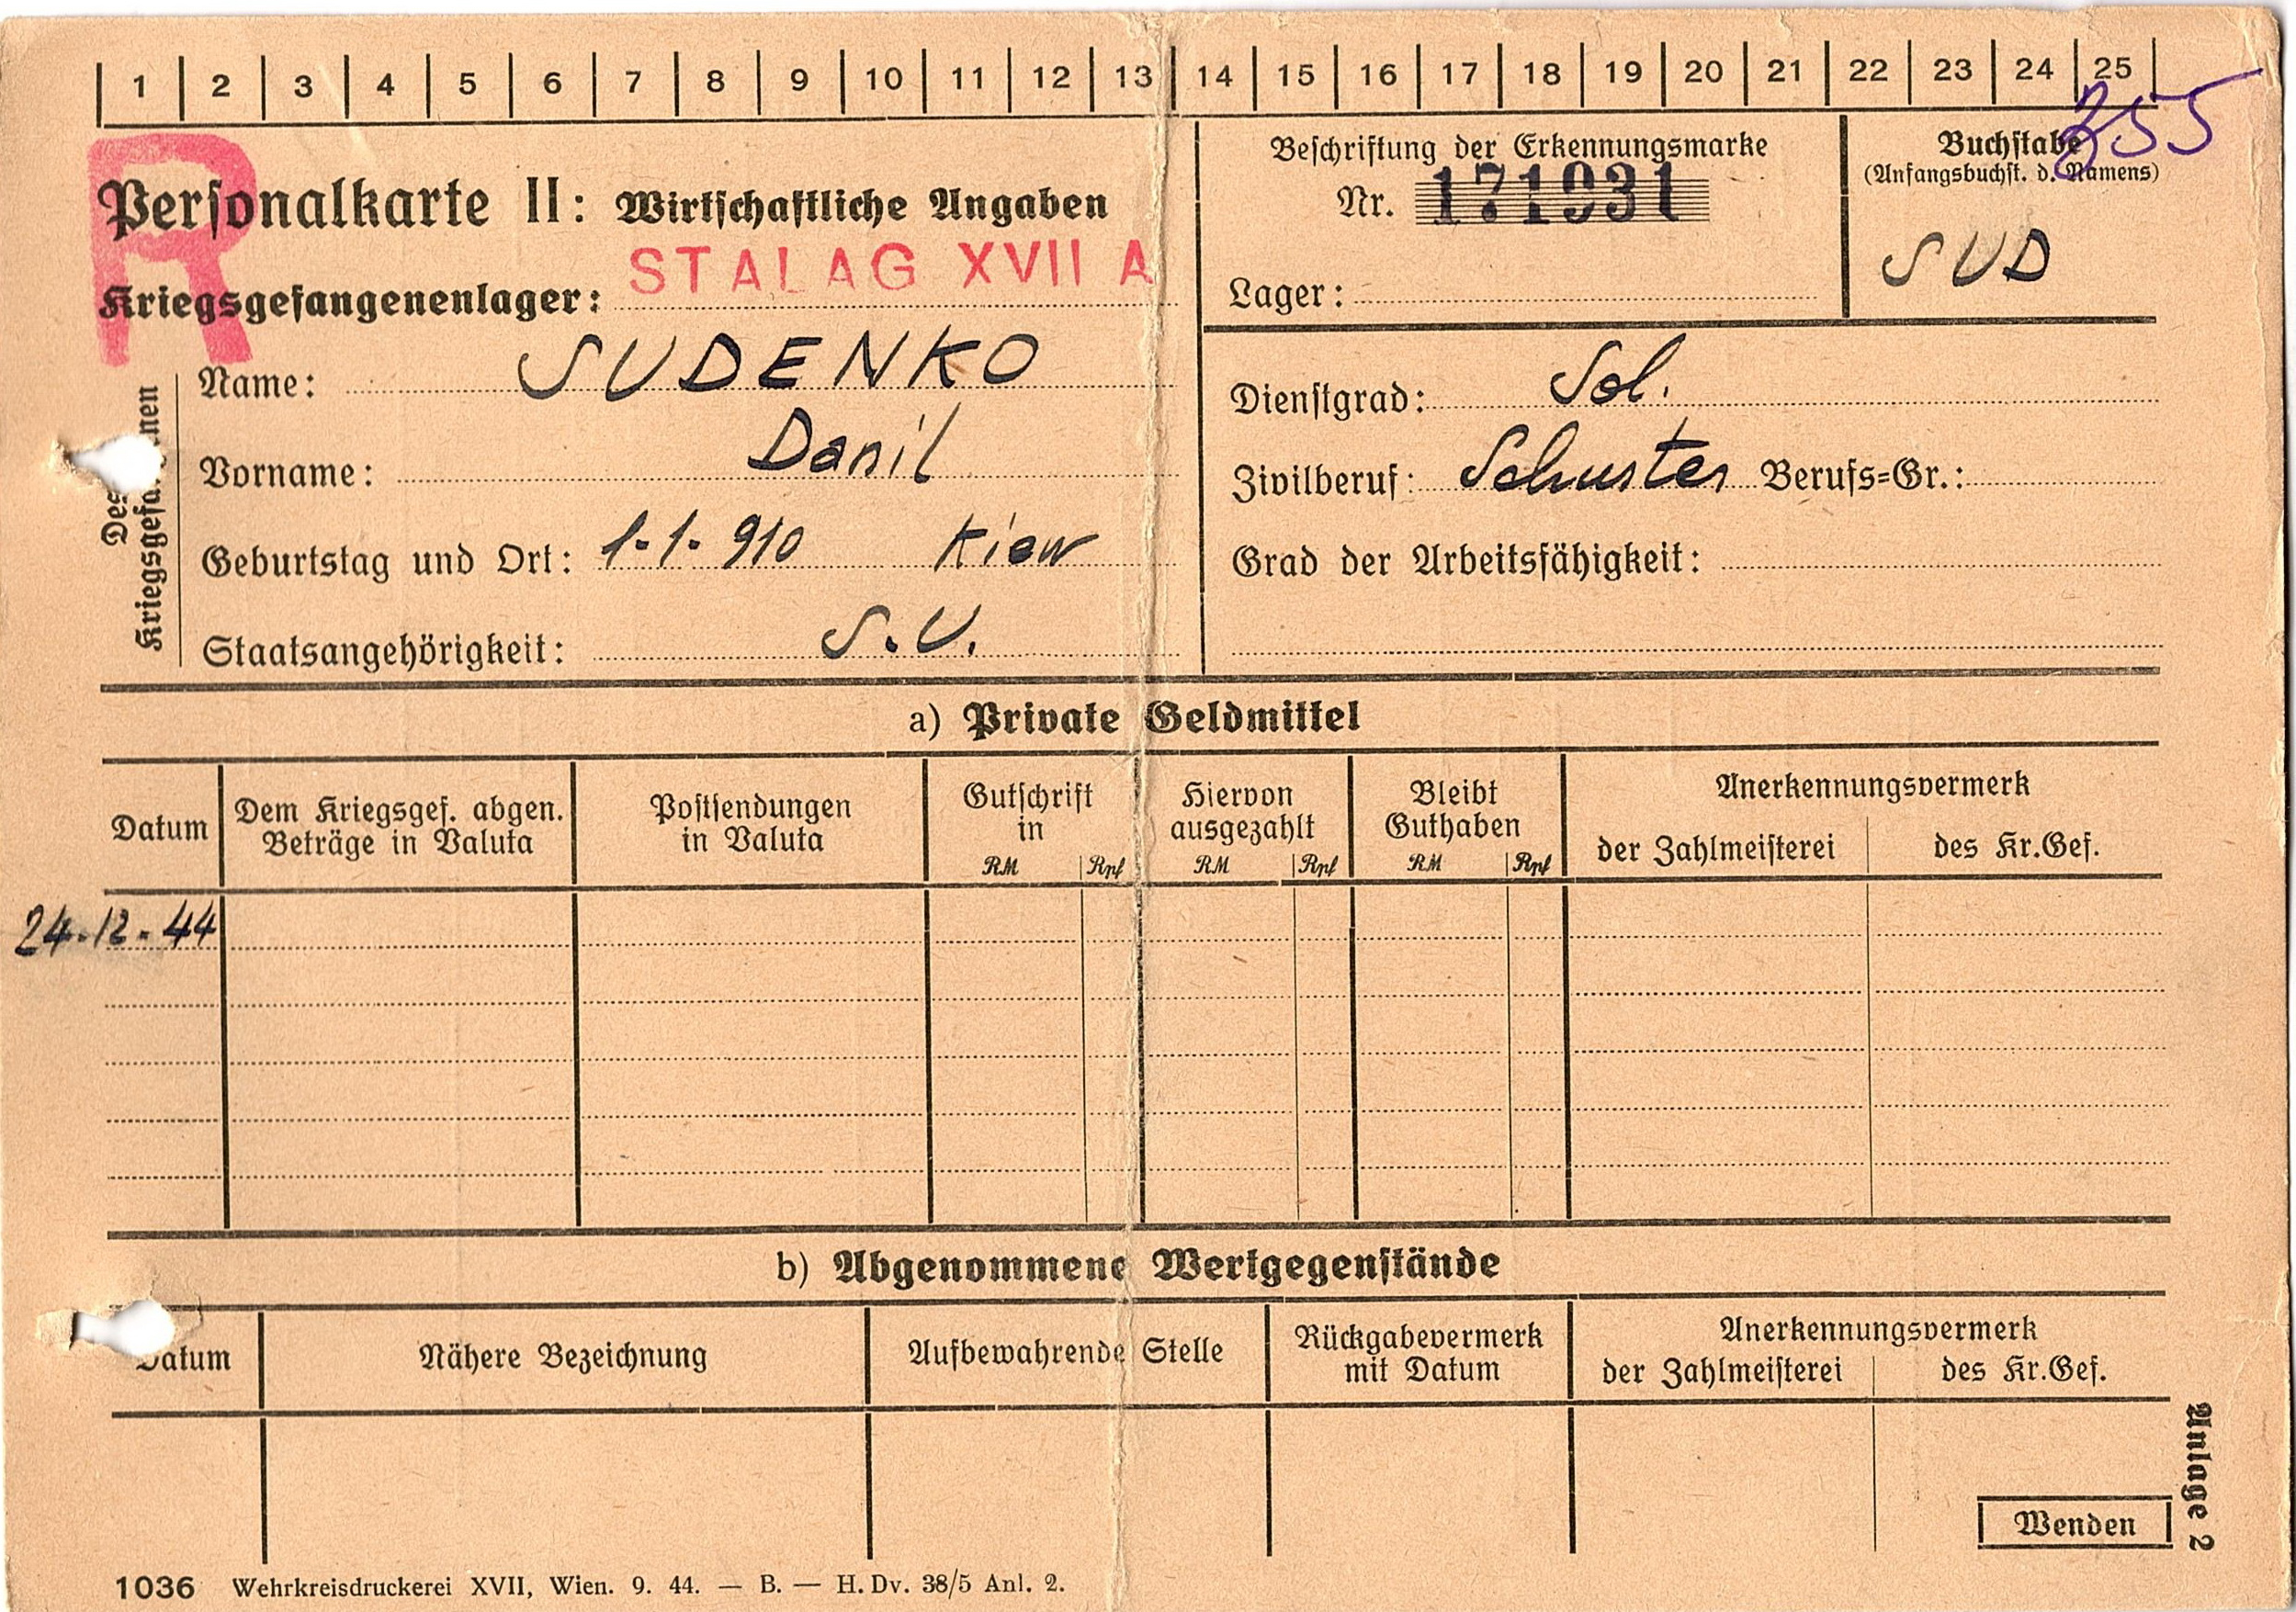 1 2 3 4 5 6 7 8 9 10 11 12 13 14 15 16 17 18 19 20 21 22 23 24 25
355
R
Personalkarte II: Wirtschaftliche Angaben
STALAG XVII A
Kriegsgefangenenlager:
Beschriftung der Erkennungsmarke
Nr. 171931
Lager:
Buchstabe
(Anfangsbuchst. d. Namens)
SUD
Des
Name: SUDENKO
Vorname: Danil
Geburtstag und Ort: 1.1.910 Kiew
Staatsangehörigkeit: S.U.
Dienstgrad: Sol.
Zivilberuf: Schuster Berufs=Gr.:
Grad der Arbeitsfähigkeit:
a) Private Geldmittel
Datum
Dem Kriegsgef. abgen.
Beträge in Valuta
Postsendungen
in Valuta
Gutschrift
in
RM Rpf
Hiervon
ausgezahlt
RM Rpf
Bleibt
Guthaben
RM Rpf
Anerkennungsvermerk
der Zahlmeisterei des Kr.Gef.
24.12.44
b) Abgenommene Wertgegenstände
Datum
Nähere Bezeichnung
Aufbewahrende Stelle
Rückgabevermerk
mit Datum
Anerkennungsvermerk
der Zahlmeisterei des Kr.Gef.
Anlage 2
Wenden
1036 Wehrkreisdruckerei XVII, Wien. 9. 44. — B. — H. Dv. 38/5 Anl. 2.